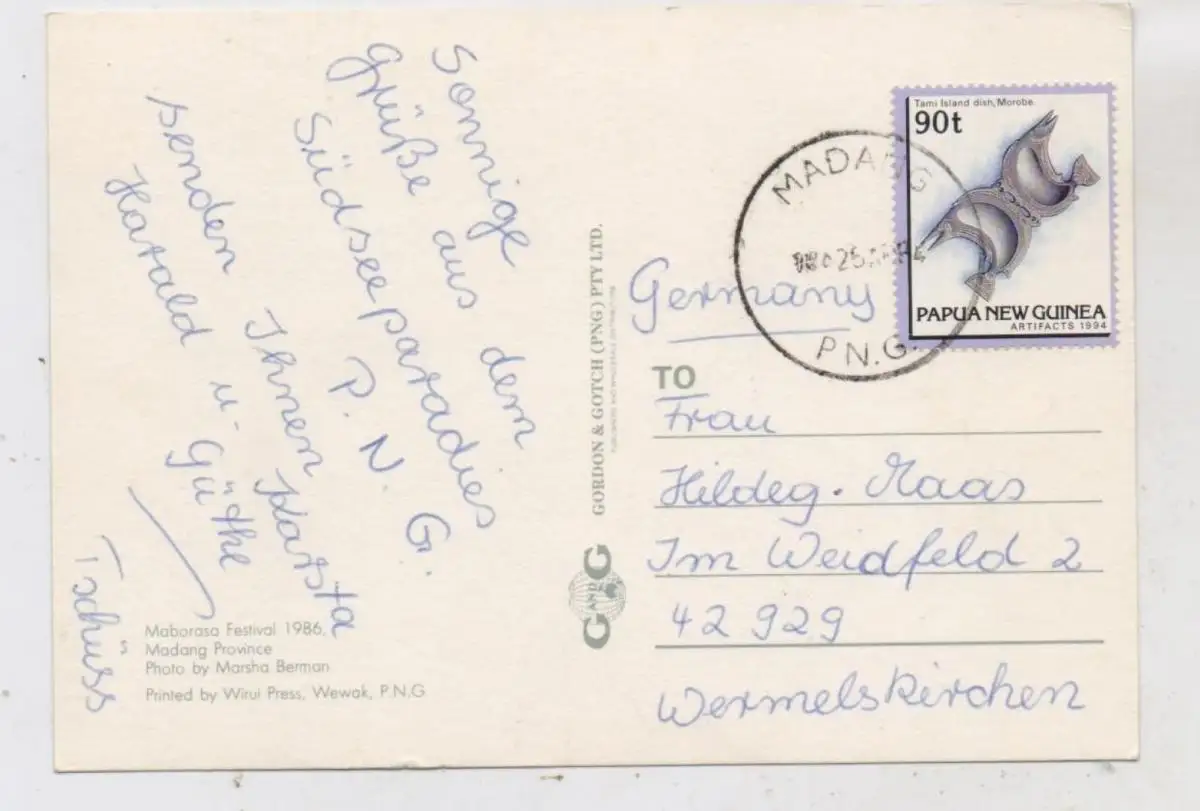 Sonnige
Grüße aus dem
Südseeparadies
P. N. G.
senden Ihnen
Harald u. Karsta
Tschüss
Maborasa Festival 1986,
Madang Province
Photo by Marsha Berman
Printed by Wirui Press, Wewak, P.N.G
GORDON & GOTCH (PNG) PTY LTD.
G AND G
Tami Island dish, Morobe.
90t
PAPUA NEW GUINEA
ARTIFACTS 1994
MADANG
P.N.G.
Germany
TO
Frau
Hildeg. Maas
Im Weidfeld 2
42 929
Wermelskirchen